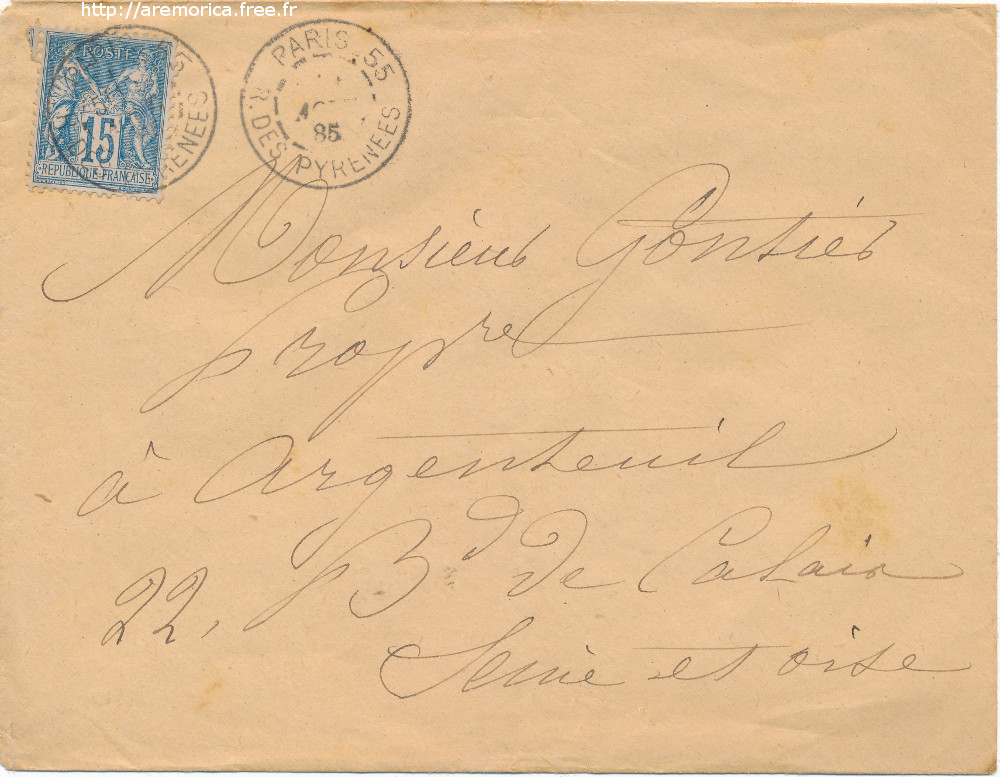 http://aremorica.free.fr
POSTE
15
REPUBLIQUE FRANÇAISE
55
PYRENEES
PARIS 55
85
R. DES PYRENEES
Monsieur Gontier
propre
à Argenteuil
22, Bd de Calais
Seine et oise